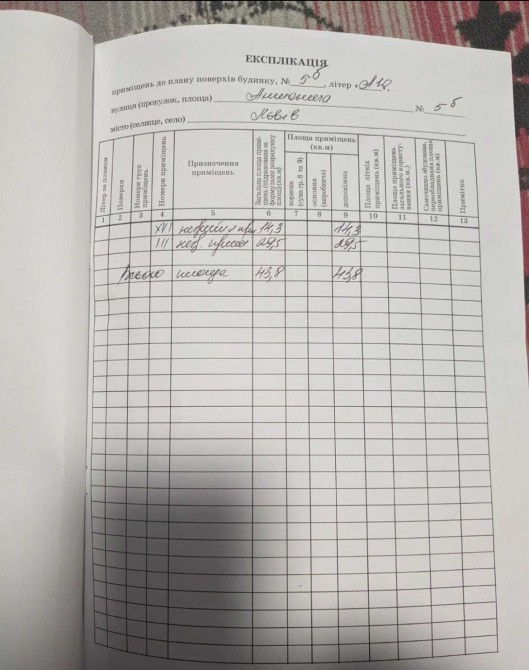 ЕКСПЛІКАЦІЯ
приміщень до плану поверхів будинку, № 5б, літер «
вулиця (провулок, площа) № 5б
місто (селище, село) Львів
Літер за планом
Поверхи
Номери груп приміщень
Номери приміщень
Призначення приміщень
Загальна площа приміщень
Площа приміщень (кв.м)
корисна (сума гр. 8 та 9)
основна (виробнича)
допоміжна
Площа літніх приміщень (кв.м)
Площа приміщень загального користування (кв.м.)
Самочинно збудована, переобладнана площа приміщень (кв.м)
Примітка
1 2 3 4 5 6 7 8 9 10 11 12 13
XVI 14,3 14,3
III 29,5 29,5
Всього площа 43,8 43,8